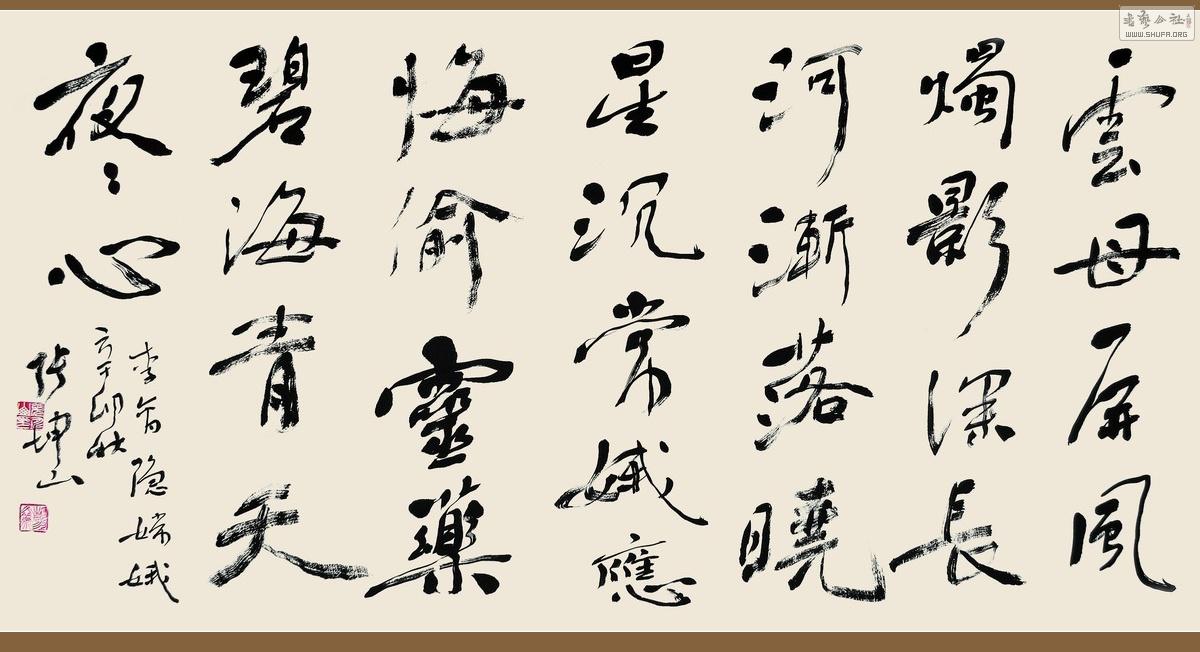 雲母屏風
燭影深長
河漸落曉
星沉常娥應
悔偷靈藥
碧海青天
夜〻心
李商隐嫦娥
辛卯秋
張坤山
書藝公社
WWW.SHUFA.ORG